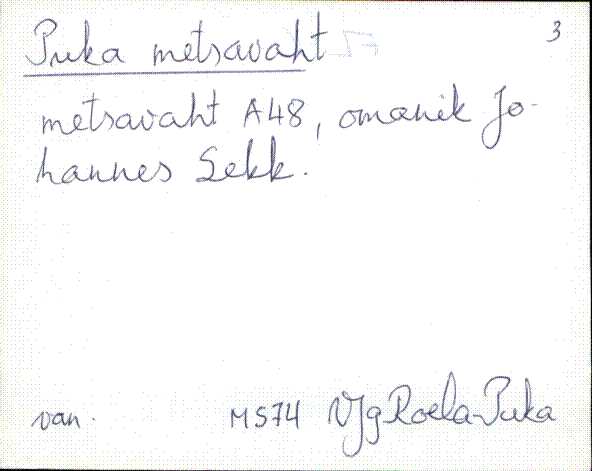 3
Puka metsavaht
metsavaht A48, omanik Jo-
hannes Sekk.
van. MS74 VJg Roela-Puka